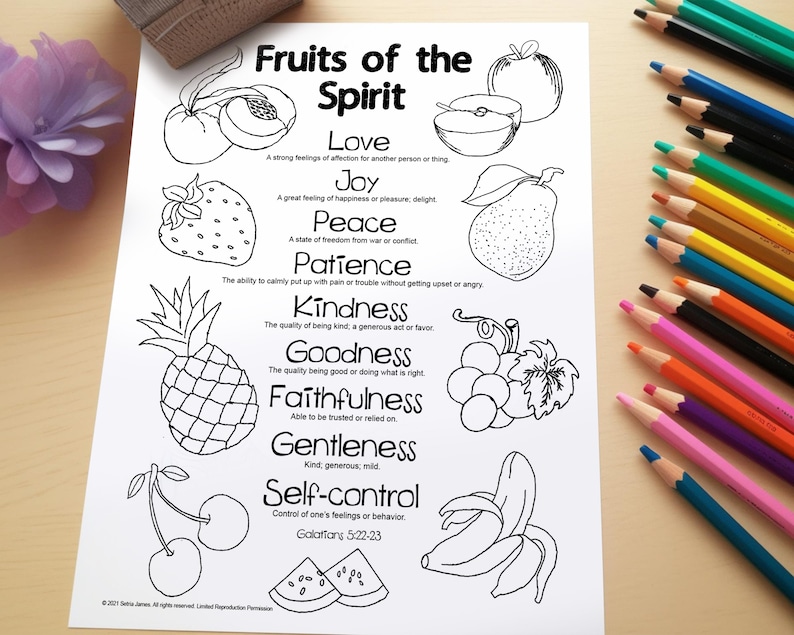 Fruits of the
Spirit
Love
A strong feelings of affection for another person or thing.
Joy
A great feeling of happiness or pleasure; delight.
Peace
A state of freedom from war or conflict.
Patience
The ability to calmly put up with pain or trouble without getting upset or angry.
Kindness
The quality of being kind; a generous act or favor.
Goodness
The quality being good or doing what is right.
Faithfulness
Able to be trusted or relied on.
Gentleness
Kind; generous; mild.
Self-control
Control of one's feelings or behavior.
Galatians 5:22-23
© 2021 Setria James. All rights reserved. Limited Reproduction Permission